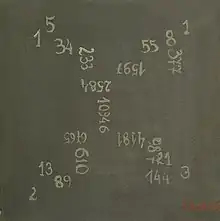 5
1
1
34
8
55
233
377
1597
2584
10946
6765
4181
610
987
21
13
89
144
3
2